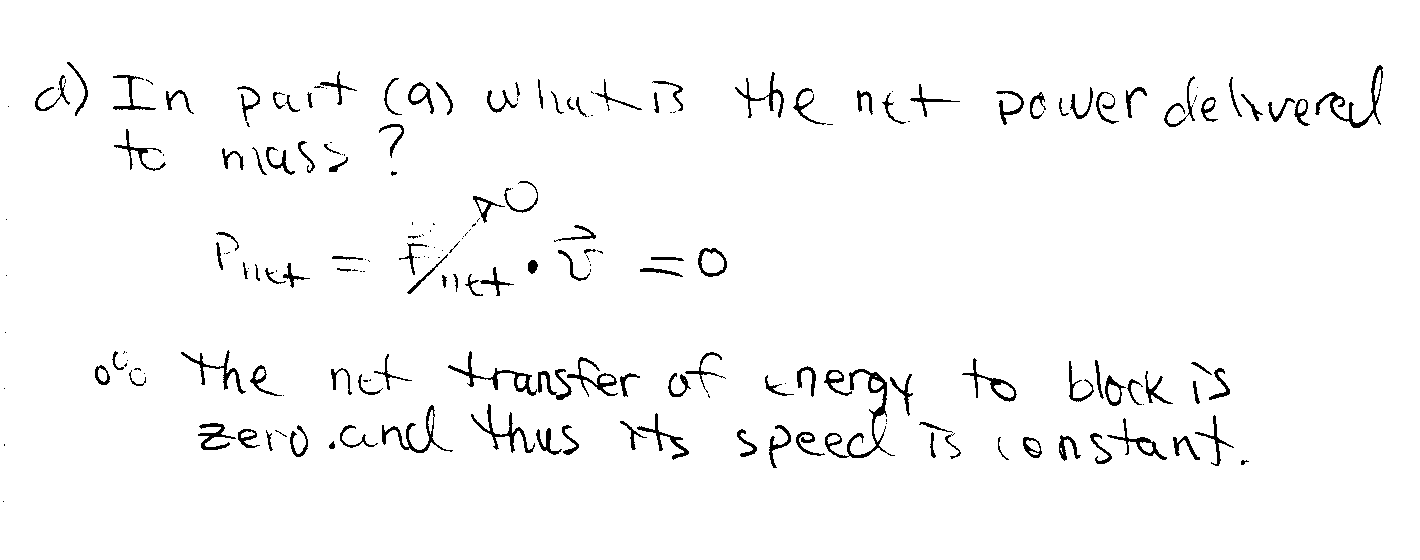 d) In part (a) what is the net power delivered
to mass?
0
P net = F net · v⃗ = 0
∴ the net transfer of energy to block is
zero. and thus its speed is constant.